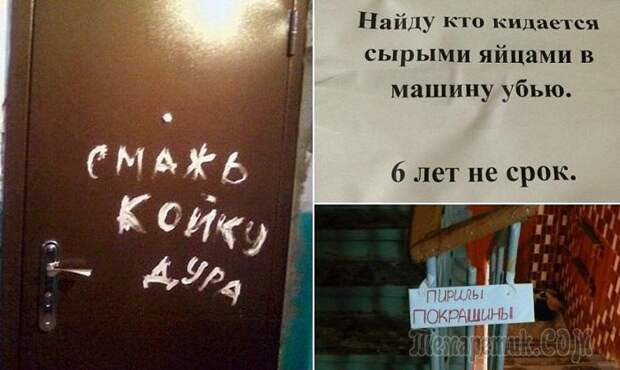 СМАЖЬ
КОЙКУ
ДУРА
Найду кто кидается
сырыми яйцами в
машину убью.
6 лет не срок.
ПИРИЛЫ
ПОКРАШИНЫ
Техаретик.COM